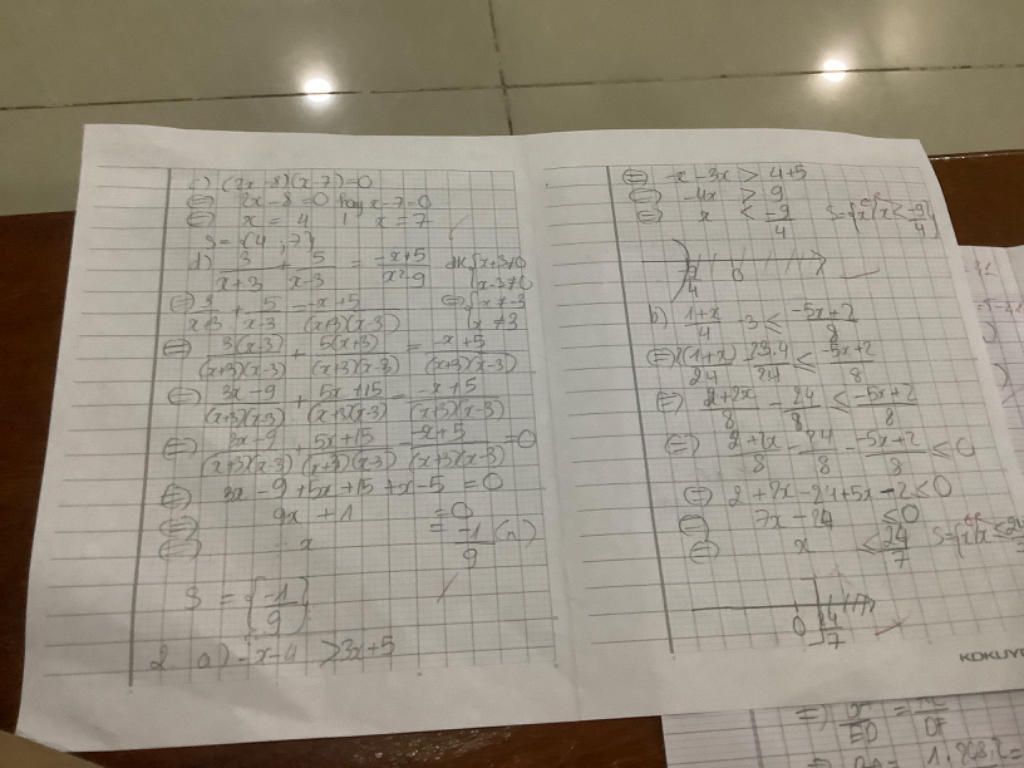 c) (2x-8)(x-7)=0
⇔ 2x-8=0 hay x-7=0
⇔ x = 4 | x = 7
S={4;7}
d) 3/(x+3) + 5/(x-3) = (-x+5)/(x²-9) đk {x+3≠0
{x-3≠0
⇔ 3/(x+3) + 5/(x-3) = (-x+5)/((x+3)(x-3)) ⇔ {x≠-3
{x≠3
⇔ 3(x-3)/((x+3)(x-3)) + 5(x+3)/((x+3)(x-3)) = (-x+5)/((x+3)(x-3))
⇔ (3x-9)/((x+3)(x-3)) + (5x+15)/((x+3)(x-3)) = (-x+5)/((x+3)(x-3))
⇔ (3x-9)/((x+3)(x-3)) + (5x+15)/((x+3)(x-3)) - (-x+5)/((x+3)(x-3)) = 0
⇔ 3x-9+5x+15+x-5 = 0
⇔ 9x+1 = 0
⇔ x = -1/9 (n)
S = {-1/9}
2 a) -x-4 > 3x+5
⇔ -x-3x > 4+5
⇔ -4x > 9
⇔ x < -9/4 S={x/x<-9/4}
-9/4 0
b) (1+x)/4 - 3 ≤ (-5x+2)/8
⇔ 2(1+x)/24 - 23.4/24 ≤ (-5x+2)/8
⇔ (2+2x)/8 - 24/8 ≤ (-5x+2)/8
⇔ (2+2x)/8 - 24/8 - (-5x+2)/8 ≤ 0
⇔ 2+2x-24+5x-2≤0
⇔ 7x-24 ≤0
⇔ x ≤ 24/7 S={x/x≤
0 24/7
KOKUYO
⇒ /ED = /DF